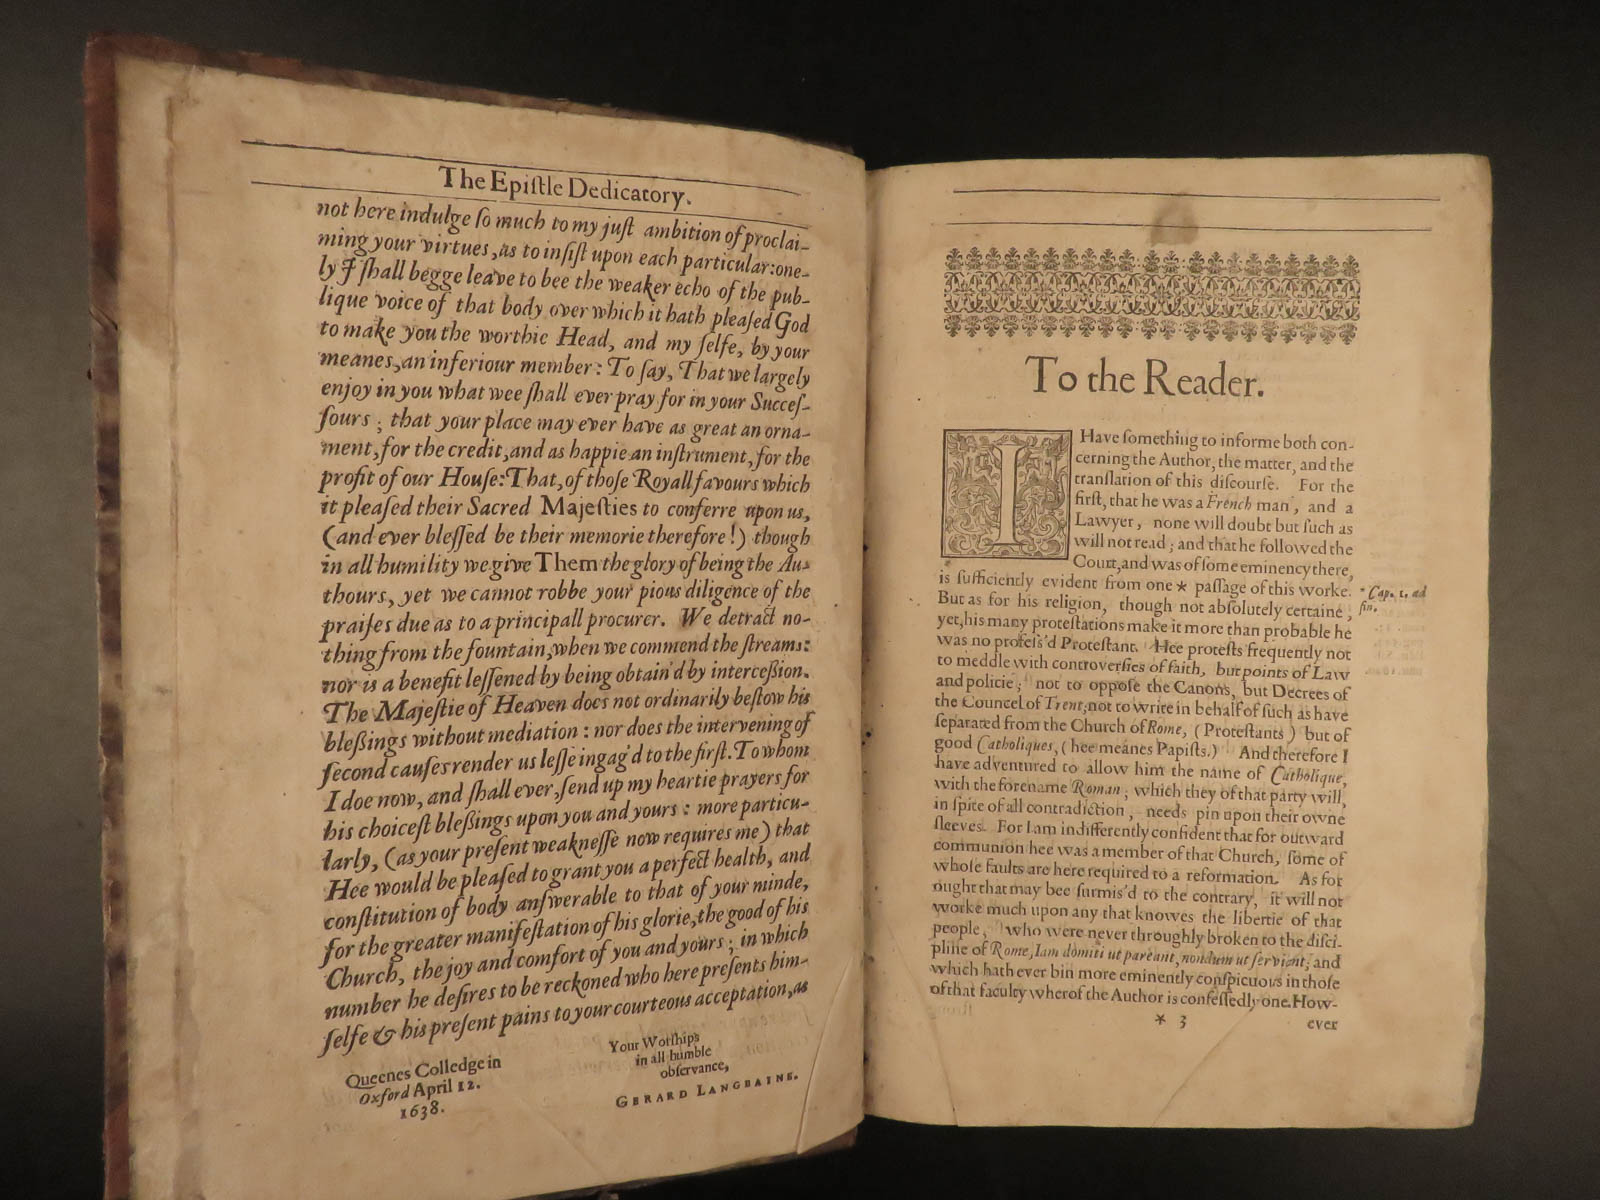 The Epiſtle Dedicatory.
not here indulge ſo much to my juſt ambition of proclai-
ming your virtues, as to inſiſt upon each particular: one-
ly I ſhall begge leave to bee the weaker echo of the pub-
lique voice of that body over which it hath pleaſed God
to make you the worthie Head, and my ſelfe, by your
meanes, an inferiour member: To ſay, That we largely
enjoy in you what wee ſhall ever pray for in your Succeſ-
ſours; that your place may ever have as great an orna-
ment, for the credit, and as happie an inſtrument, for the
profit of our Houſe: That, of thoſe Royall favours which
it pleaſed their Sacred Majeſties to conferre upon us,
(and ever bleſſed be their memorie therefore!) though
in all humility we give Them the glory of being the Au-
thours, yet we cannot robbe your pious diligence of the
praiſes due as to a principall procurer. We detract no-
thing from the fountain, when we commend the ſtreams:
nor is a benefit leſſened by being obtain'd by interceßion.
The Majeſtie of Heaven does not ordinarily beſtow his
bleßings without mediation: nor does the intervening of
ſecond cauſes render us leſſe ingag'd to the firſt. To whom
I doe now, and ſhall ever, ſend up my heartie prayers for
his choiceſt bleßings upon you and yours: more particu-
larly, (as your preſent weakneſſe now requires me) that
Hee would be pleaſed to grant you a perfect health, and
conſtitution of body anſwerable to that of your minde,
for the greater manifeſtation of his glorie, the good of his
Church, the joy and comfort of you and yours; in which
number he deſires to be reckoned who here preſents him-
ſelfe & his preſent pains to your courteous acceptation, as
Your Worſhips
in all humble
obſervance,
GERARD LANGBAINE.
Queenes Colledge in
Oxford April 12.
1638.
To the Reader.
I Have ſomething to informe both con-
cerning the Author, the matter, and the
tranſlation of this diſcourſe. For the
firſt, that he was a French man, and a
Lawyer, none will doubt but ſuch as
will not read; and that he followed the
Court, and was of ſome eminency there,
is ſufficiently evident from one * paſſage of this worke.
* Cap. 1. ad
fin.
But as for his religion, though not abſolutely certaine,
yet, his many proteſtations make it more than probable he
was no profeſs'd Proteſtant. Hee proteſts frequently not
to meddle with controverſies of faith, but points of Law
and policie; not to oppoſe the Canons, but Decrees of
the Councel of Trent; not to write in behalf of ſuch as have
ſeparated from the Church of Rome, (Proteſtants) but of
good Catholiques, (hee meanes Papiſts.) And therefore I
have adventured to allow him the name of Catholique,
with the forename Roman; which they of that party will,
in ſpite of all contradiction, needs pin upon their owne
ſleeves. For I am indifferently confident that for outward
communion hee was a member of that Church, ſome of
whoſe faults are here required to a reformation. As for
ought that may bee ſurmis'd to the contrary, it will not
worke much upon any that knowes the libertie of that
people, who were never throughly broken to the diſci-
pline of Rome, Iam domiti ut pareant, nondum ut ſervient; and
which hath ever bin more eminently conſpicuous in thoſe
of that faculty wherof the Author is confeſſedly one. How-
* 3
ever